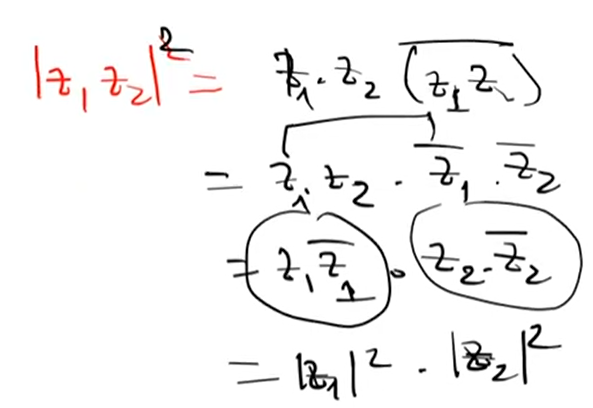 |z₁ z₂|² = z₁ · z₂ (z̅₁ z̅₂)
= z₁ · z₂ · z̅₁ · z̅₂
= z₁ z̅₁ · z₂ · z̅₂
= |z₁|² · |z₂|²